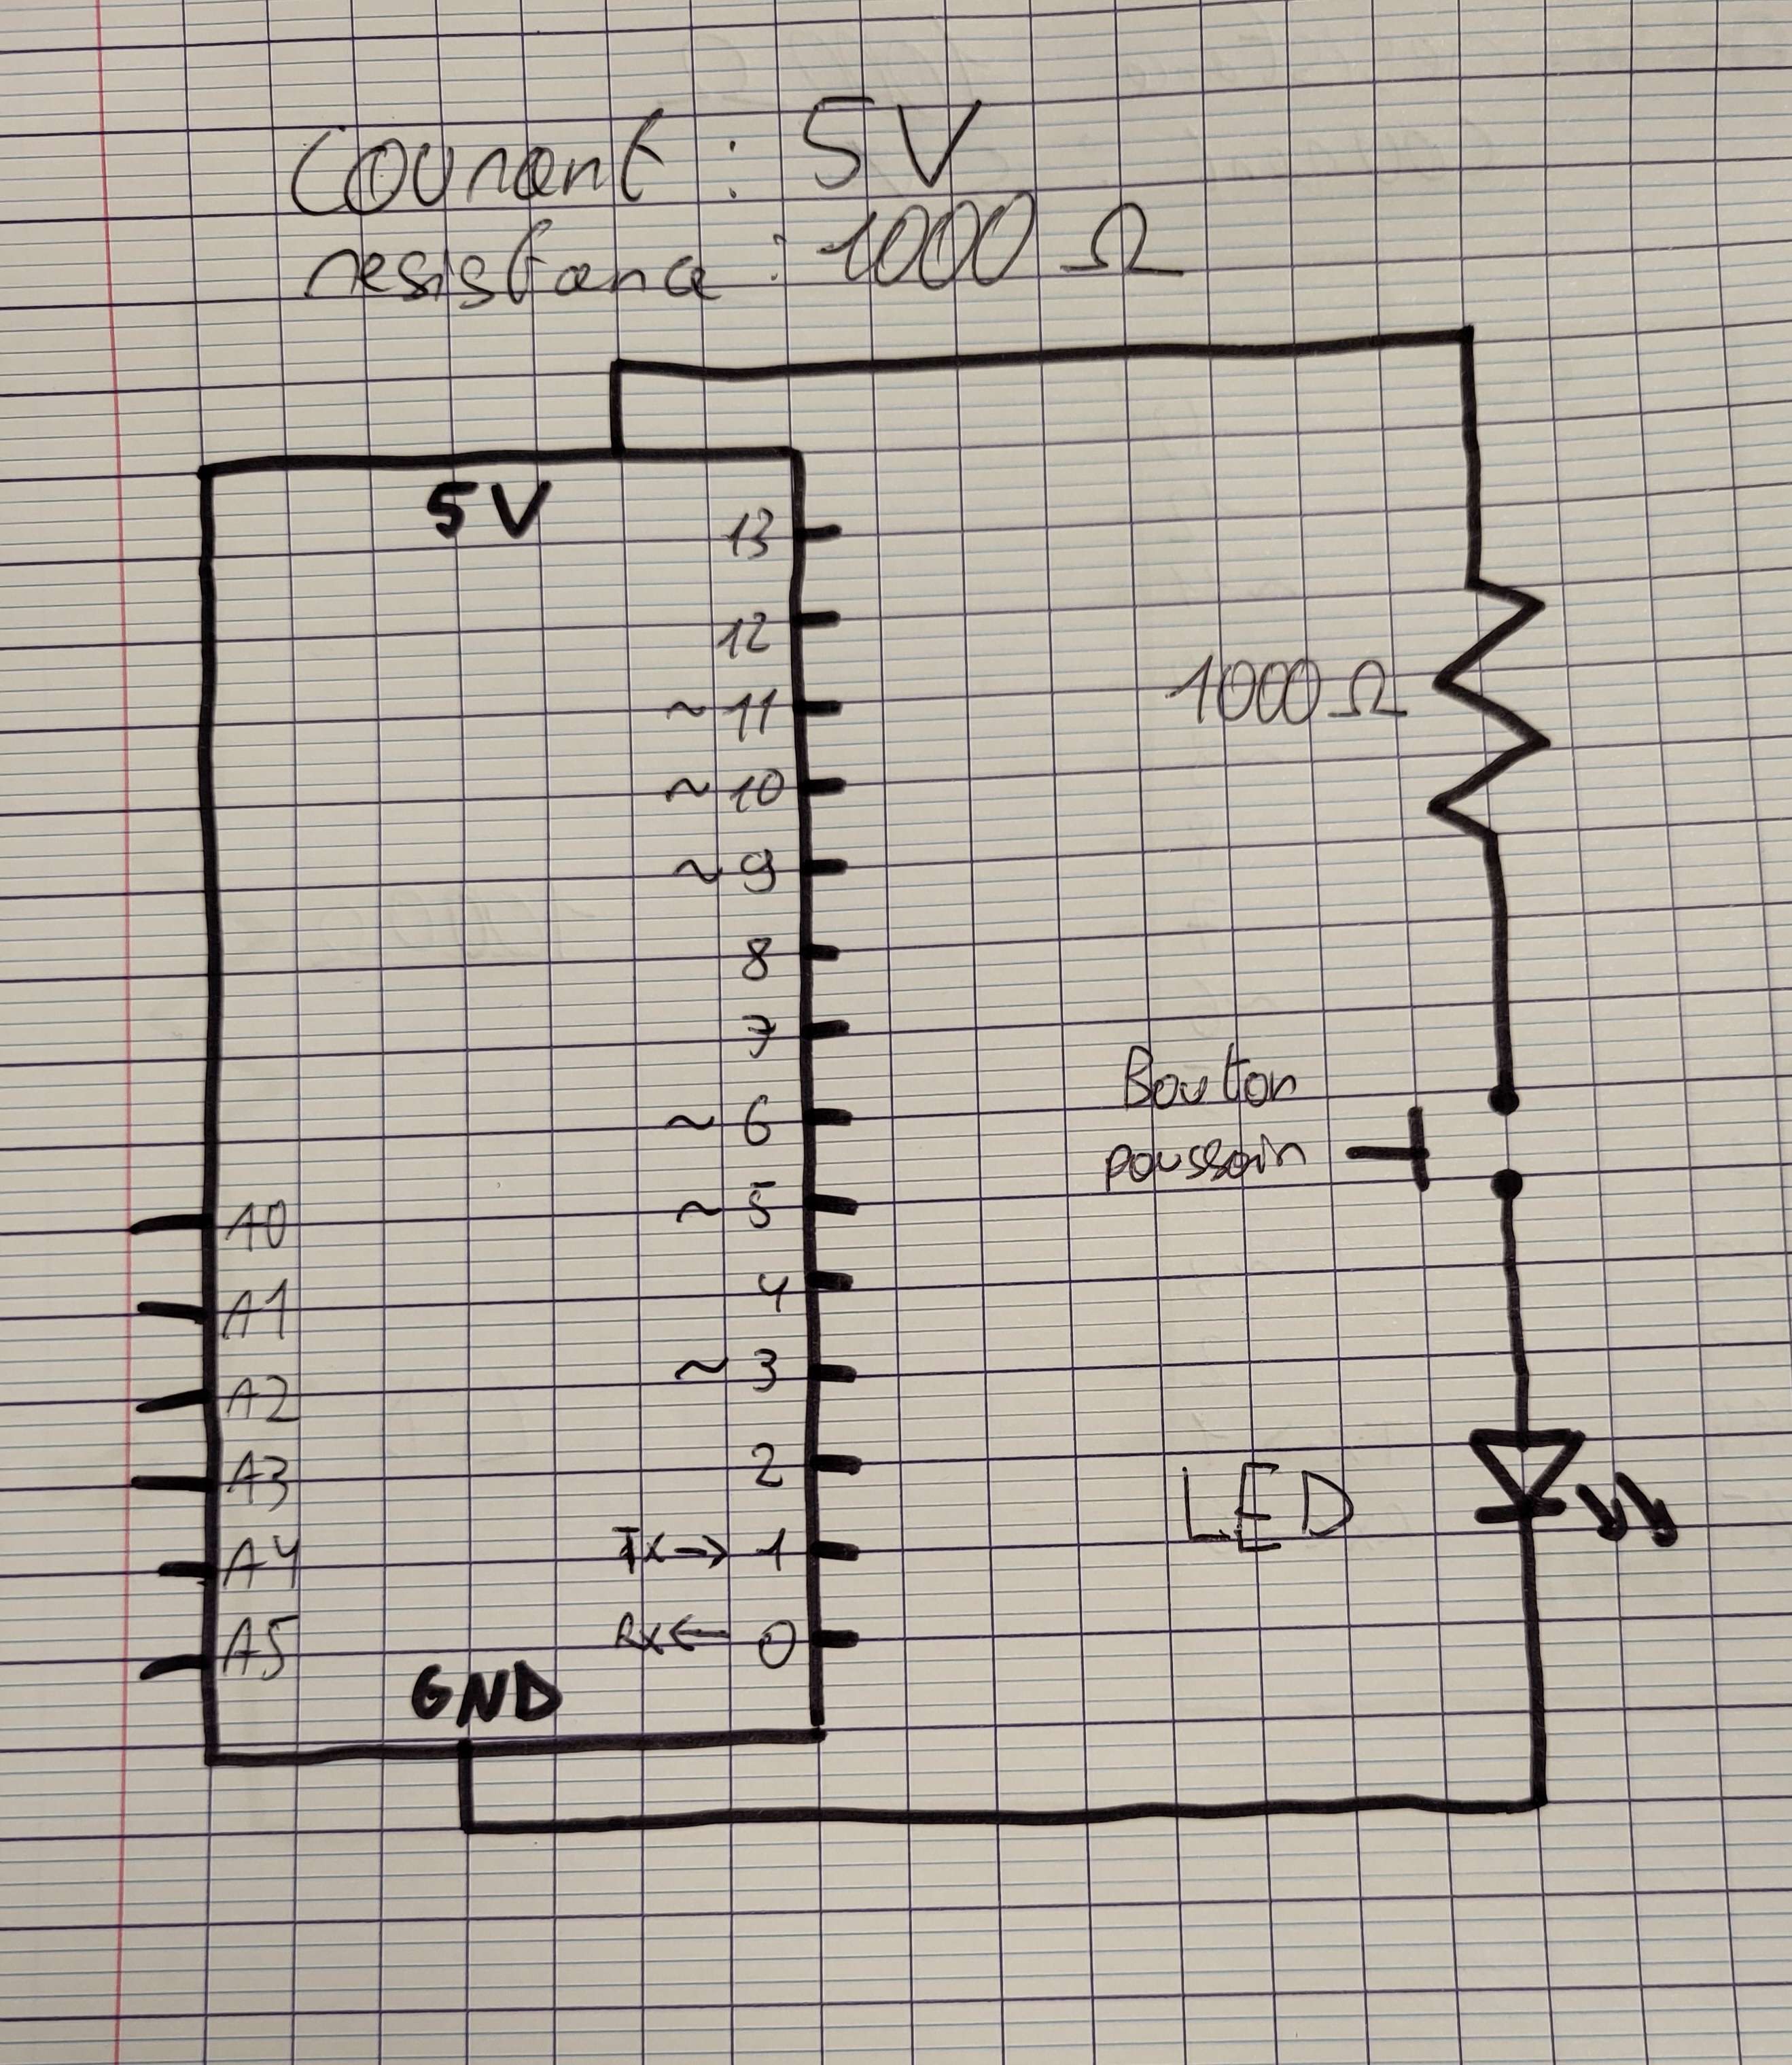 Courant : 5V
resistance : 1000 Ω
5V
13
12
~ 11
~ 10
~ 9
8
7
~ 6
~ 5
4
~ 3
2
Tx→ 1
Rx← 0
A0
A1
A2
A3
A4
A5
GND
1000 Ω
Bouton
poussoin
LED